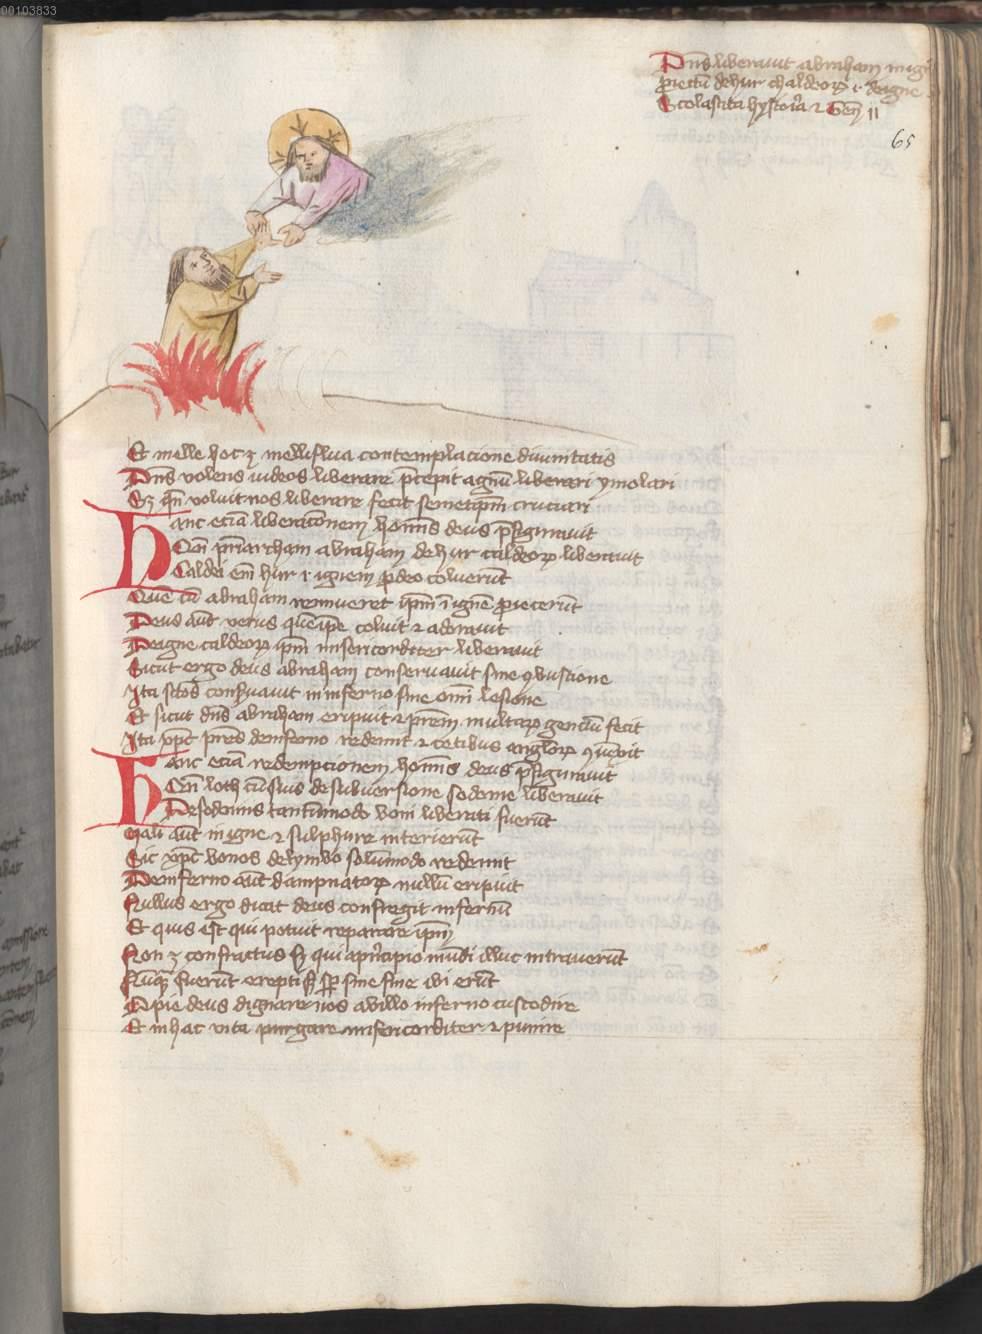 00103833
Dns liberauit abraham in igne
proiectu de hur chaldeoꝝ .i. de igne
Scolastica hystoria ⁊ Gen 11
65
Et melle hoc ꝫ melliflua contemplacione diuinitatis
Dns volens iudeos liberare pcepit agnu liberari ymolari
Sꝫ qn voluit nos liberare fecit semetipm cruciari
Hanc ecia liberaconem hoīs deus pfigurauit
Qn priarcham abraham de hur caldeoꝝ liberauit
Caldei em hur .i. ignem p deo coluerūt
Que cu abraham rennueret ipm i igne proiecerūt
Deus aut verus que ipe coluit ⁊ adorauit
De igne caldeoꝝ ipm misericorditer liberauit
Sicut ergo deus abraham conseruauit sine ꝯbustione
Ita scos conseruauit in inferno sine omi lesione
Et sicut dns abraham eripuit ⁊ prem multaꝝ genciu fecit
Ita xpc pres de inferno redemit ⁊ cetibus angloꝝ
Hanc ecia redempcionem hoīs deus pfigurauit
Qn loth cu suis de subuersione sodome liberauit
De sodomis tantumodo boni liberati fuerūt
Mali aut in igne ⁊ sulphure interierūt
Sic xpc bonos de lymbo solumodo redemit
De inferno aut dampnatoꝝ nullu eripuit
Nullus ergo dicat deus confregit infernu
Et quis est qui potuit reparare ipm
Non ꝫ confractus sꝫ qui a pncipio mudi illuc intrauerūt
Nuqꝫ fuerūt erepti sꝫ sp sine fine ibi erūt
O pie deus dignare nos ab illo inferno custodire
Et in hac vita purgare misericorditer ⁊ punire